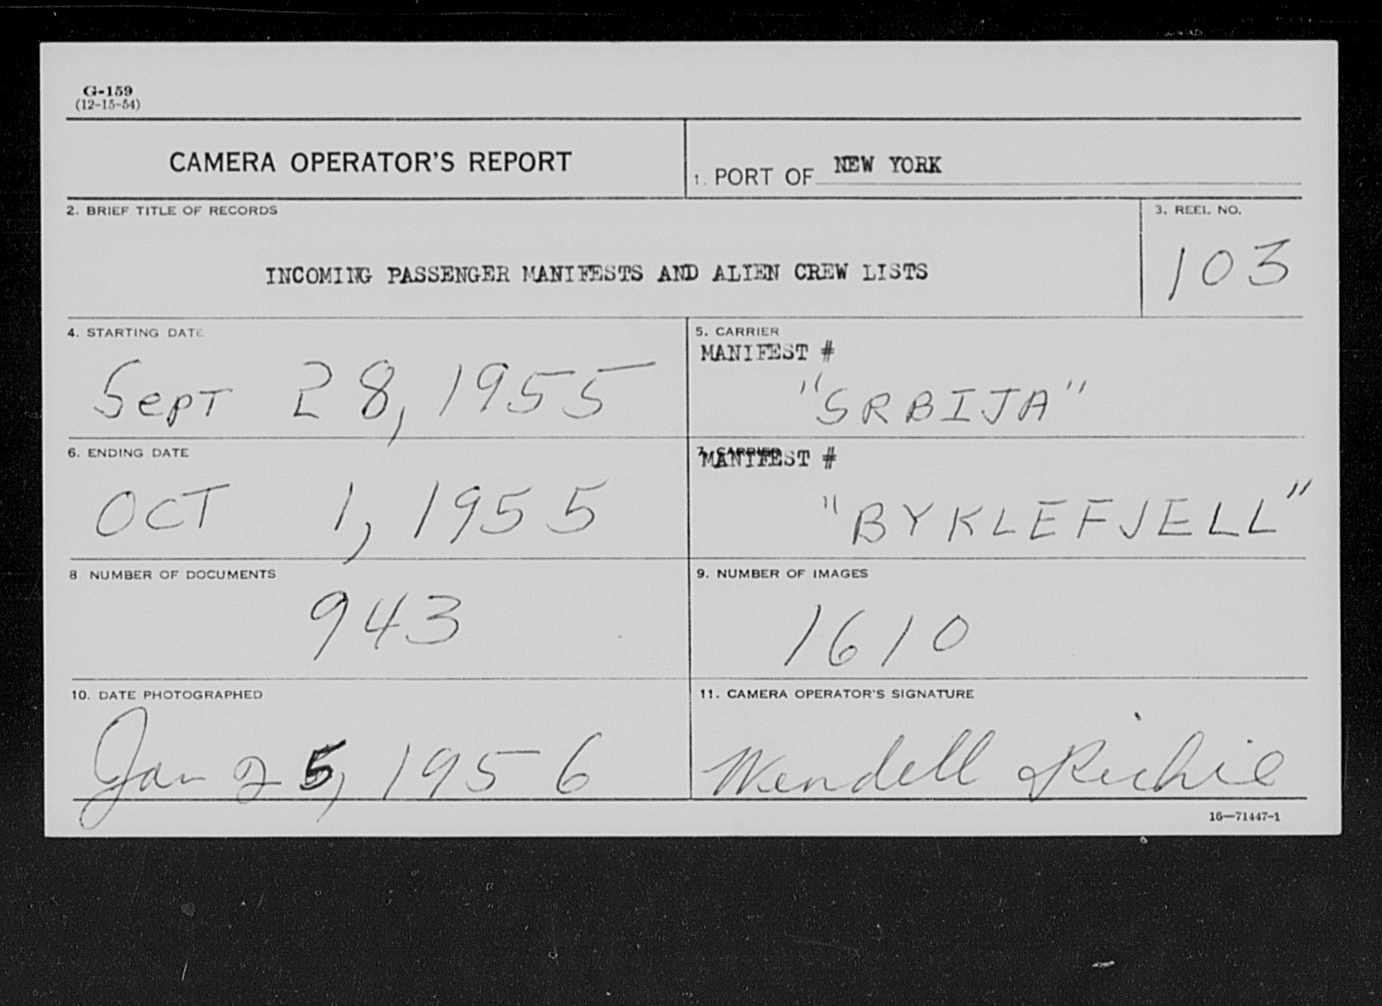 G-159
(12-15-54)
CAMERA OPERATOR'S REPORT
1. PORT OF NEW YORK
2. BRIEF TITLE OF RECORDS
INCOMING PASSENGER MANIFESTS AND ALIEN CREW LISTS
3. REEL NO.
103
4. STARTING DATE
Sept 28, 1955
5. CARRIER
MANIFEST #
"SRBIJA"
6. ENDING DATE
OCT 1, 1955
7. CARRIER
MANIFEST #
"BYKLEFJELL"
8 NUMBER OF DOCUMENTS
943
9. NUMBER OF IMAGES
1610
10. DATE PHOTOGRAPHED
Jan 25, 1956
11. CAMERA OPERATOR'S SIGNATURE
Wendell Richie
16—71447-1